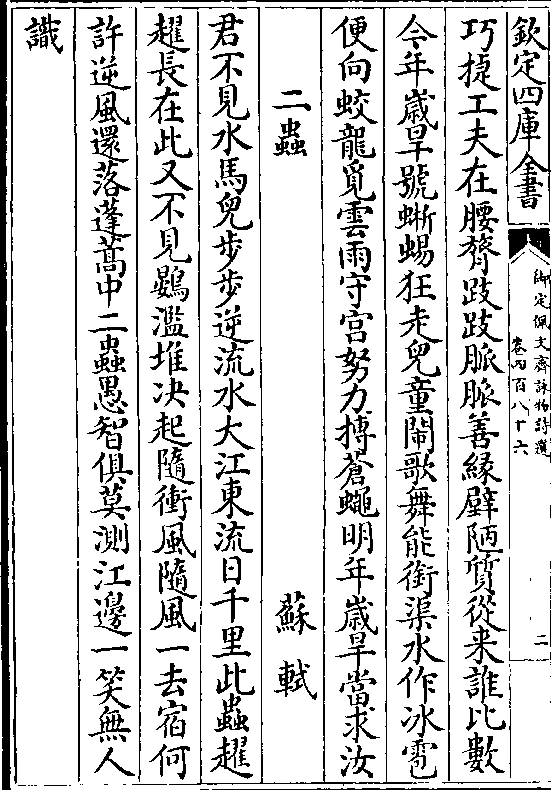 欽定四庫全書
御定佩文齋詠物詩選
卷四百八十六
二
巧捷工夫在腰膂跂跂脈脈善緣壁陋質從来誰比數
今年歲旱號蜥蜴狂走兒童鬧歌舞能銜渠水作冰雹
便向蛟龍覓雲雨守宮努力搏蒼蠅明年歲旱當求汝
二蟲　蘇軾
君不見水馬兒步步逆流水大江東流日千里此蟲趯
趯長在此又不見鷃濫堆决起隨衝風隨風一去宿何
許逆風還落蓬蒿中二蟲愚智俱莫測江邊一笑無人
識